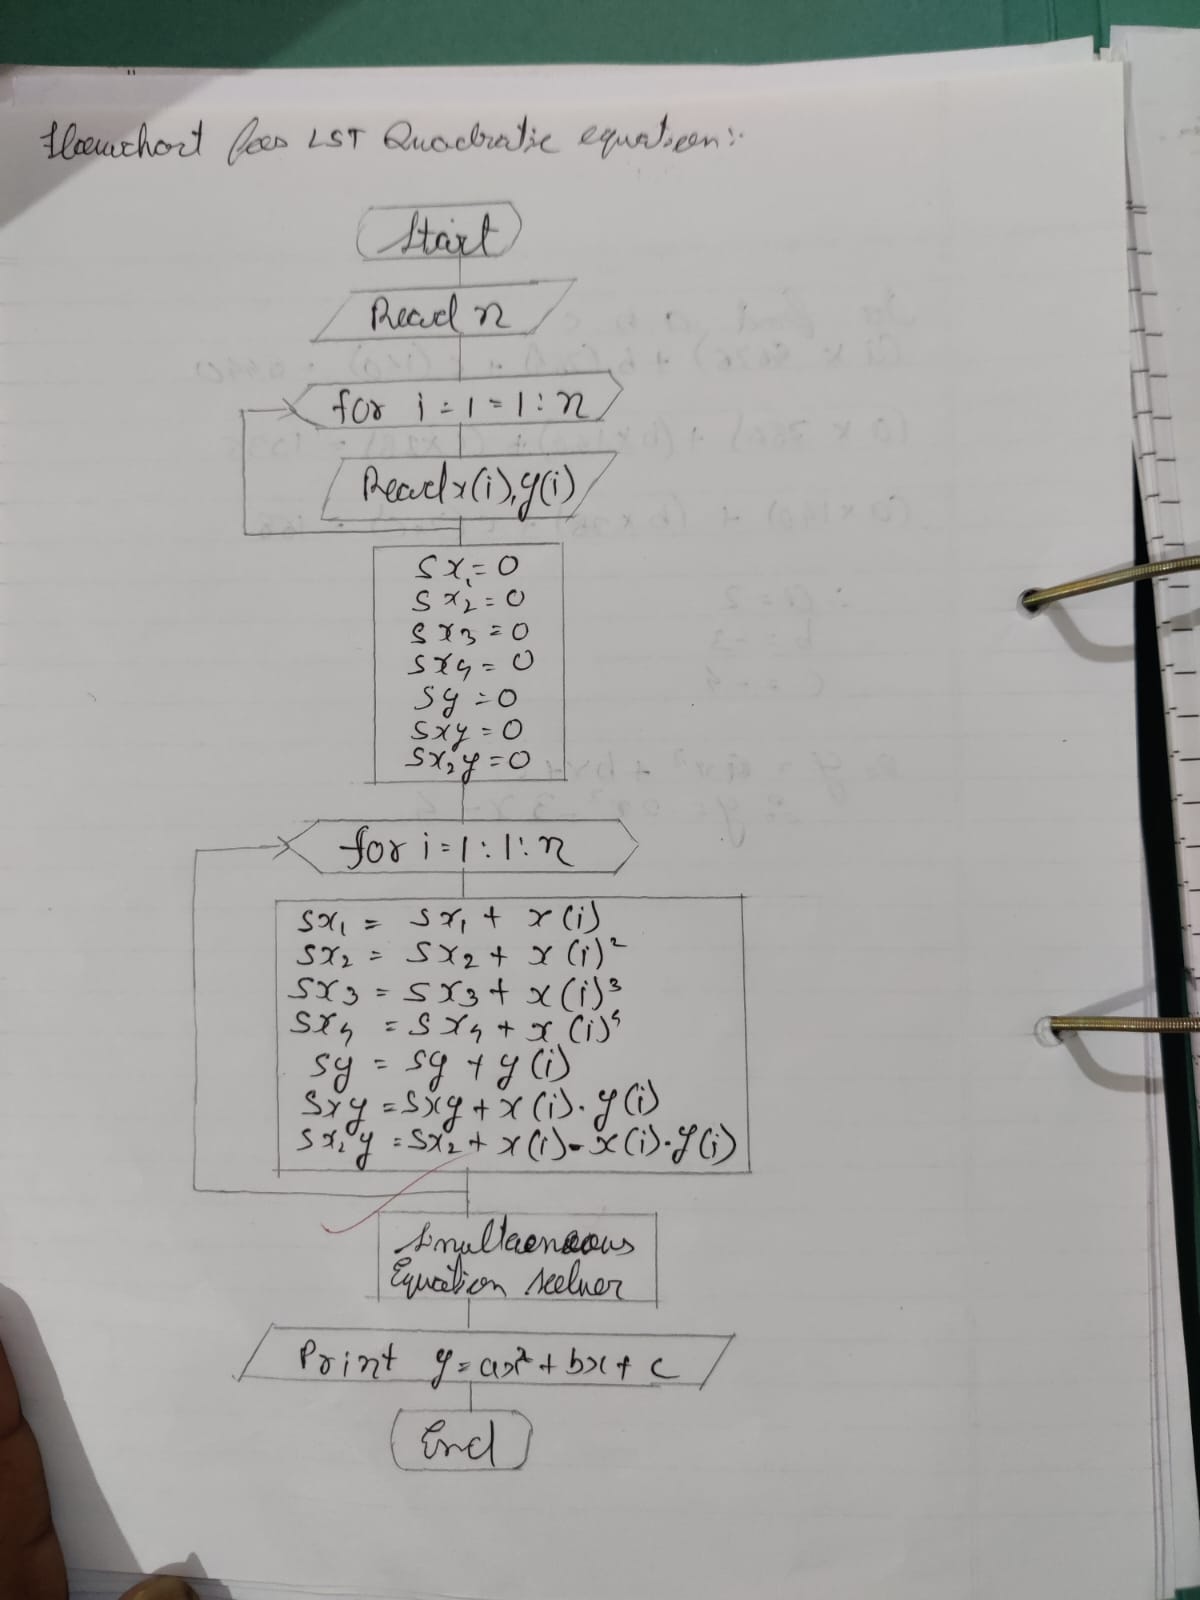 Flowchart for LST Quadratic equation:-
Start
Read n
for i = 1 = 1 : n
Read x(i), y(i)
Sx₁ = 0
Sx₂ = 0
Sx3 = 0
Sx4 = 0
Sy = 0
Sxy = 0
Sx₂y = 0
for i = 1 : 1 : n
Sx₁ = Sx₁ + x(i)
Sx₂ = Sx₂ + x(i)²
Sx3 = Sx3 + x(i)³
Sx4 = Sx4 + x(i)⁴
Sy = Sy + y(i)
Sxy = Sxy + x(i).y(i)
Sx₂y = Sx₂ + x(i)-x(i).y(i)
Simultaeneous
Equation Solver
Print y = ax² + bx + c
End